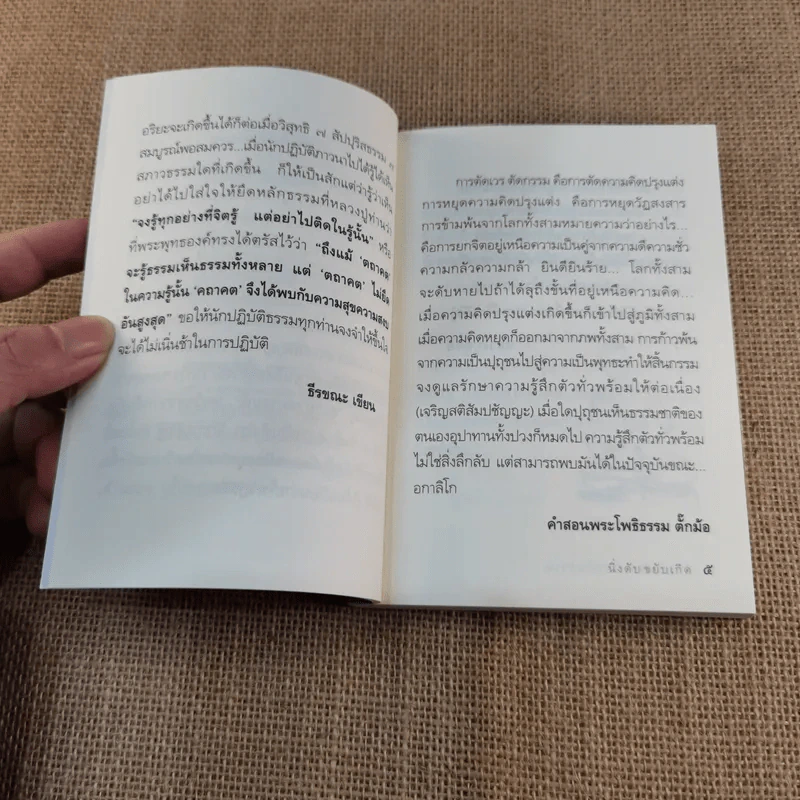 อริยะจะเกิดขึ้นได้ก็ต่อเมื่อวิสุทธิ ๗ สัปปุริสธรรม ๗
สมบูรณ์พอสมควร...เมื่อนักปฏิบัติภาวนาไปได้รู้ได้เห็น
สภาวธรรมใดที่เกิดขึ้น ก็ให้เป็นสักแต่ว่ารู้ว่าเห็น
อย่าได้ไปใส่ใจให้ยึดหลักธรรมที่หลวงปู่ท่านว่า
“จงรู้ทุกอย่างที่จิตรู้ แต่อย่าไปติดในรู้นั้น” หรือ
ที่พระพุทธองค์ทรงได้ตรัสไว้ว่า “ถึงแม้ ‘ตถาคต’
จะรู้ธรรมเห็นธรรมทั้งหลาย แต่ ‘ตถาคต’ ไม่ยึด
ในความรู้นั้น ‘คถาคต’ จึงได้พบกับความสุขความสงบ
อันสูงสุด” ขอให้นักปฏิบัติธรรมทุกท่านจงจำให้ขึ้นใจ
จะได้ไม่เนิ่นช้าในการปฏิบัติ
ธีรขณะ เขียน
การตัดเวร ตัดกรรม คือการตัดความคิดปรุงแต่ง
การหยุดความคิดปรุงแต่ง คือการหยุดวัฏสงสาร
การข้ามพ้นจากโลกทั้งสามหมายความว่าอย่างไร...
คือการยกจิตอยู่เหนือความเป็นคู่จากความดีความชั่ว
ความกลัวความกล้า ยินดียินร้าย... โลกทั้งสาม
จะดับหายไปถ้าได้ลุถึงขั้นที่อยู่เหนือความคิด...
เมื่อความคิดปรุงแต่งเกิดขึ้นก็เข้าไปสู่ภูมิทั้งสาม
เมื่อความคิดหยุดก็ออกมาจากภพทั้งสาม การก้าวพ้น
จากความเป็นปุถุชนไปสู่ความเป็นพุทธะทำให้สิ้นกรรม
จงดูแลรักษาความรู้สึกตัวทั่วพร้อมให้ต่อเนื่อง
(เจริญสติสัมปชัญญะ) เมื่อใดปุถุชนเห็นธรรมชาติของ
ตนเองอุปาทานทั้งปวงก็หมดไป ความรู้สึกตัวทั่วพร้อม
ไม่ใช่สิ่งลึกลับ แต่สามารถพบมันได้ในปัจจุบันขณะ...
อกาลิโก
คำสอนพระโพธิธรรม ตั๊กม้อ
นิ่งดับ ขยับเกิด ๕